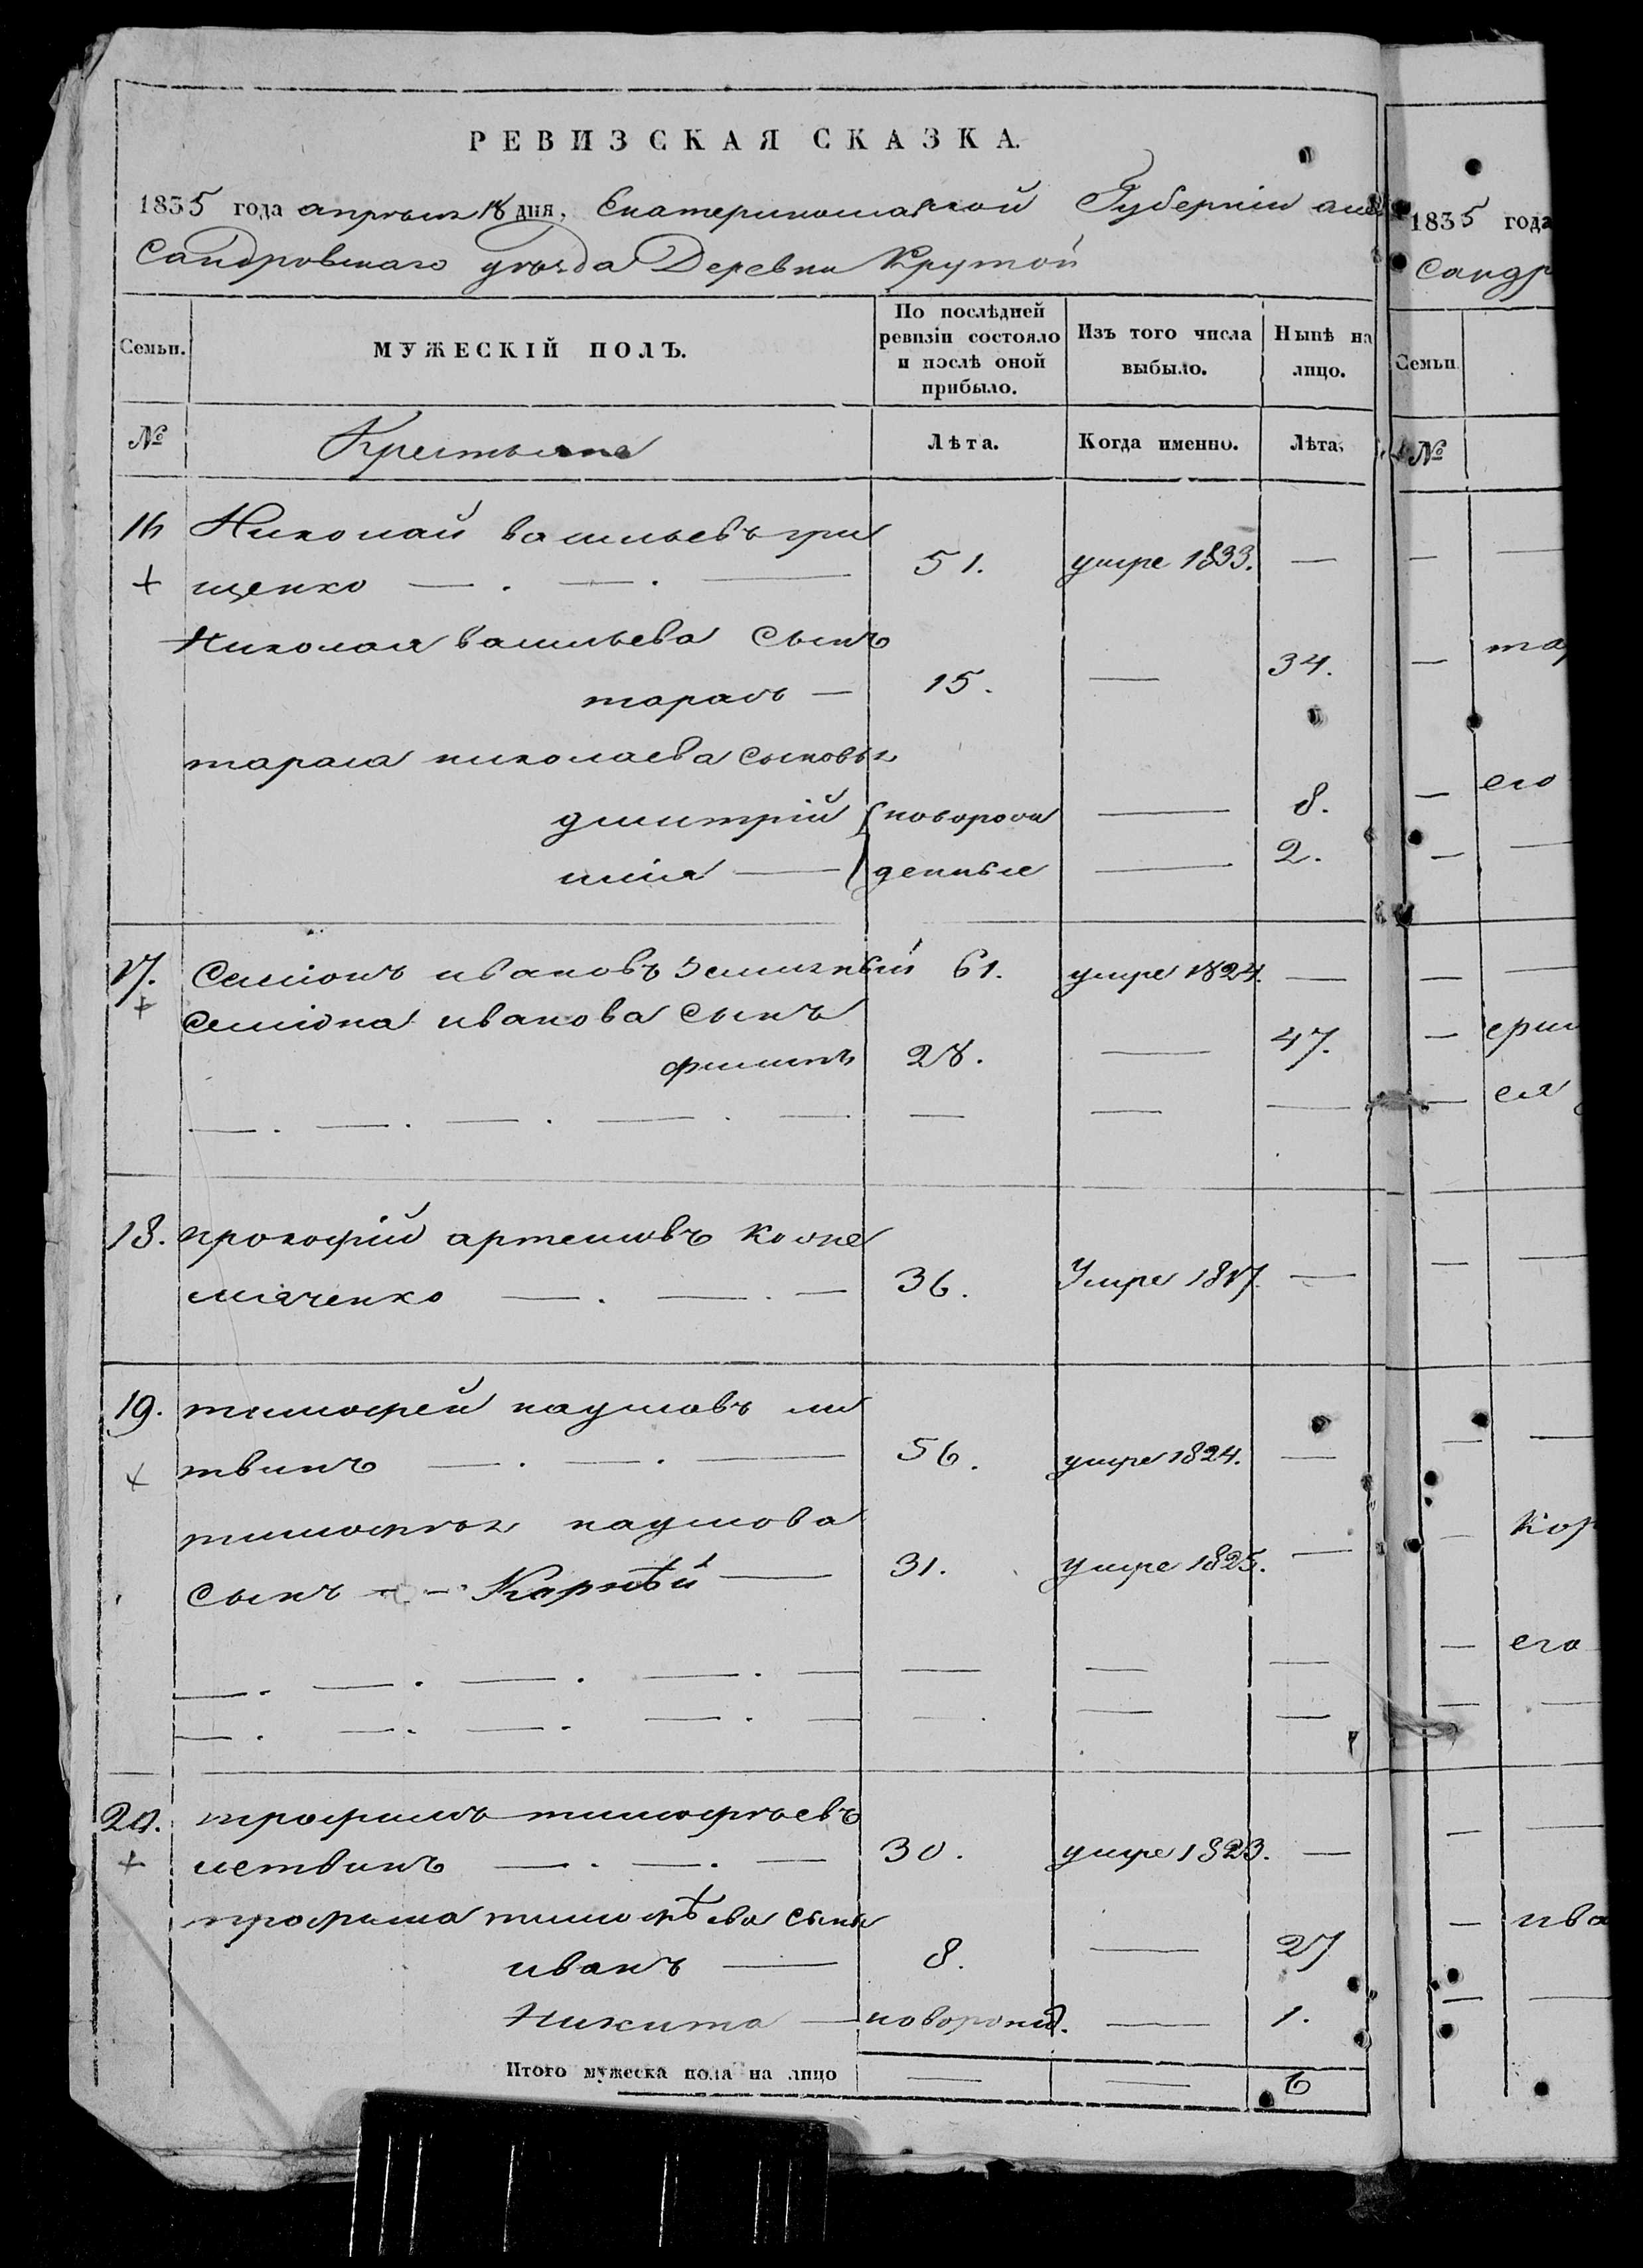 РЕВИЗСКАЯ СКАЗКА.
1835 года апреля 18 дня, Екатеринославской Губерніи алек
сандровскаго уѣзда Деревни Крутой
Семьи. МУЖЕСКІЙ ПОЛЪ. По послѣдней ревизіи состояло и послѣ оной прибыло. Изъ того числа выбыло. Нынѣ на лицо.
№ Крестьяне Лѣта. Когда именно. Лѣта.
16 Николай васильевъ гри
щенко — . — . — 51. умре 1833. —
Николая васильева сынъ
тарасъ — 15. — 34.
тараса николаева сыновья
дмитрій новорож — 8.
илія — денные — 2.
17. Семіонъ ивановъ 61. умре 1824. —
Семіона иванова сынъ
филипъ 28. — 47.
— . — . — . — . — — — —
18. прокофій артемовъ
36. Умре 1817. —
19. тимофей наумовъ ли
твинъ — . — . — 56. умре 1824. —
тимофѣя наумова
сынъ — — Карнѣй — 31. умре 1825. —
— . — . — . — . — — — —
— . — . — . — . — — . — —
20. трофимъ тимофѣевъ
летвинъ — . — . — 30. умре 1823. —
трофима тимофѣева сыны
иванъ — 8. — 27
Никита — оворожд. — 1.
Итого мужеска пола на лицо — — 6
1835 года
сандр
Семьи
№
та
его
ея
Кор
его
ива